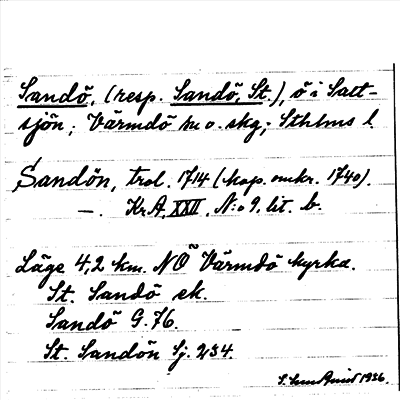 Sandö, (resp. Sandö, St.), ö i Salt-
sjön; Värmdö hd o. skg; Sthlms l.
Sandön, trol. 1714 (kop. omkr. 1740).
—. KrA. XXII. N:o 9. lit. b.
Läge 4,2 km. NO Värmdö kyrka.
St. Sandö ek.
Sandö G. 76.
St. Sandön Sj. 234.
1936.